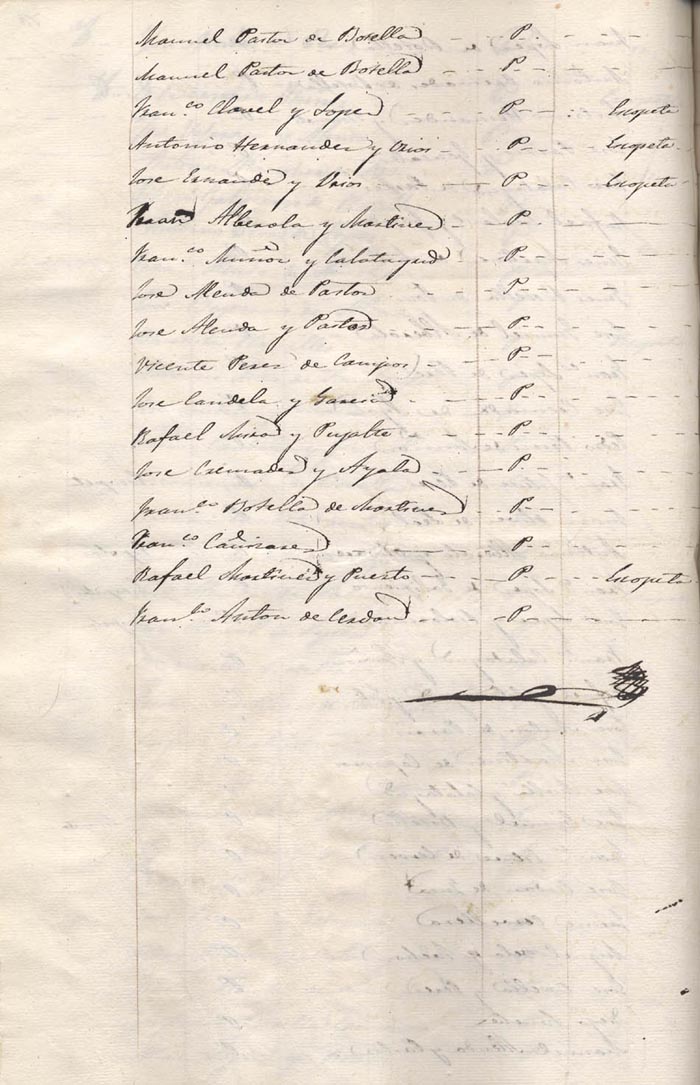 Manuel Pastor de Botella P.
Manuel Pastor de Botella P.
Fran.co Clavel y Lopez P. Escopeta
Antonio Hernandez y Urios P. Escopeta
Jose Ernandez y Urios P. Escopeta
Alberola y Martinez P.
Fran.co Muñoz y Calatayud P.
Jose Alenda de Pastor P.
Jose Alenda y Pastor P.
Vicente Perez de Campos P.
Jose Candela y Garcia P.
Rafael Mira y Pujalte P.
Jose Cremades y Ayala P.
Fran.co Botella de Martinez P.
Fran.co Cañizares P.
Rafael Martinez y Puerto P. Escopeta
Fran.co Anton de Cerdan P.